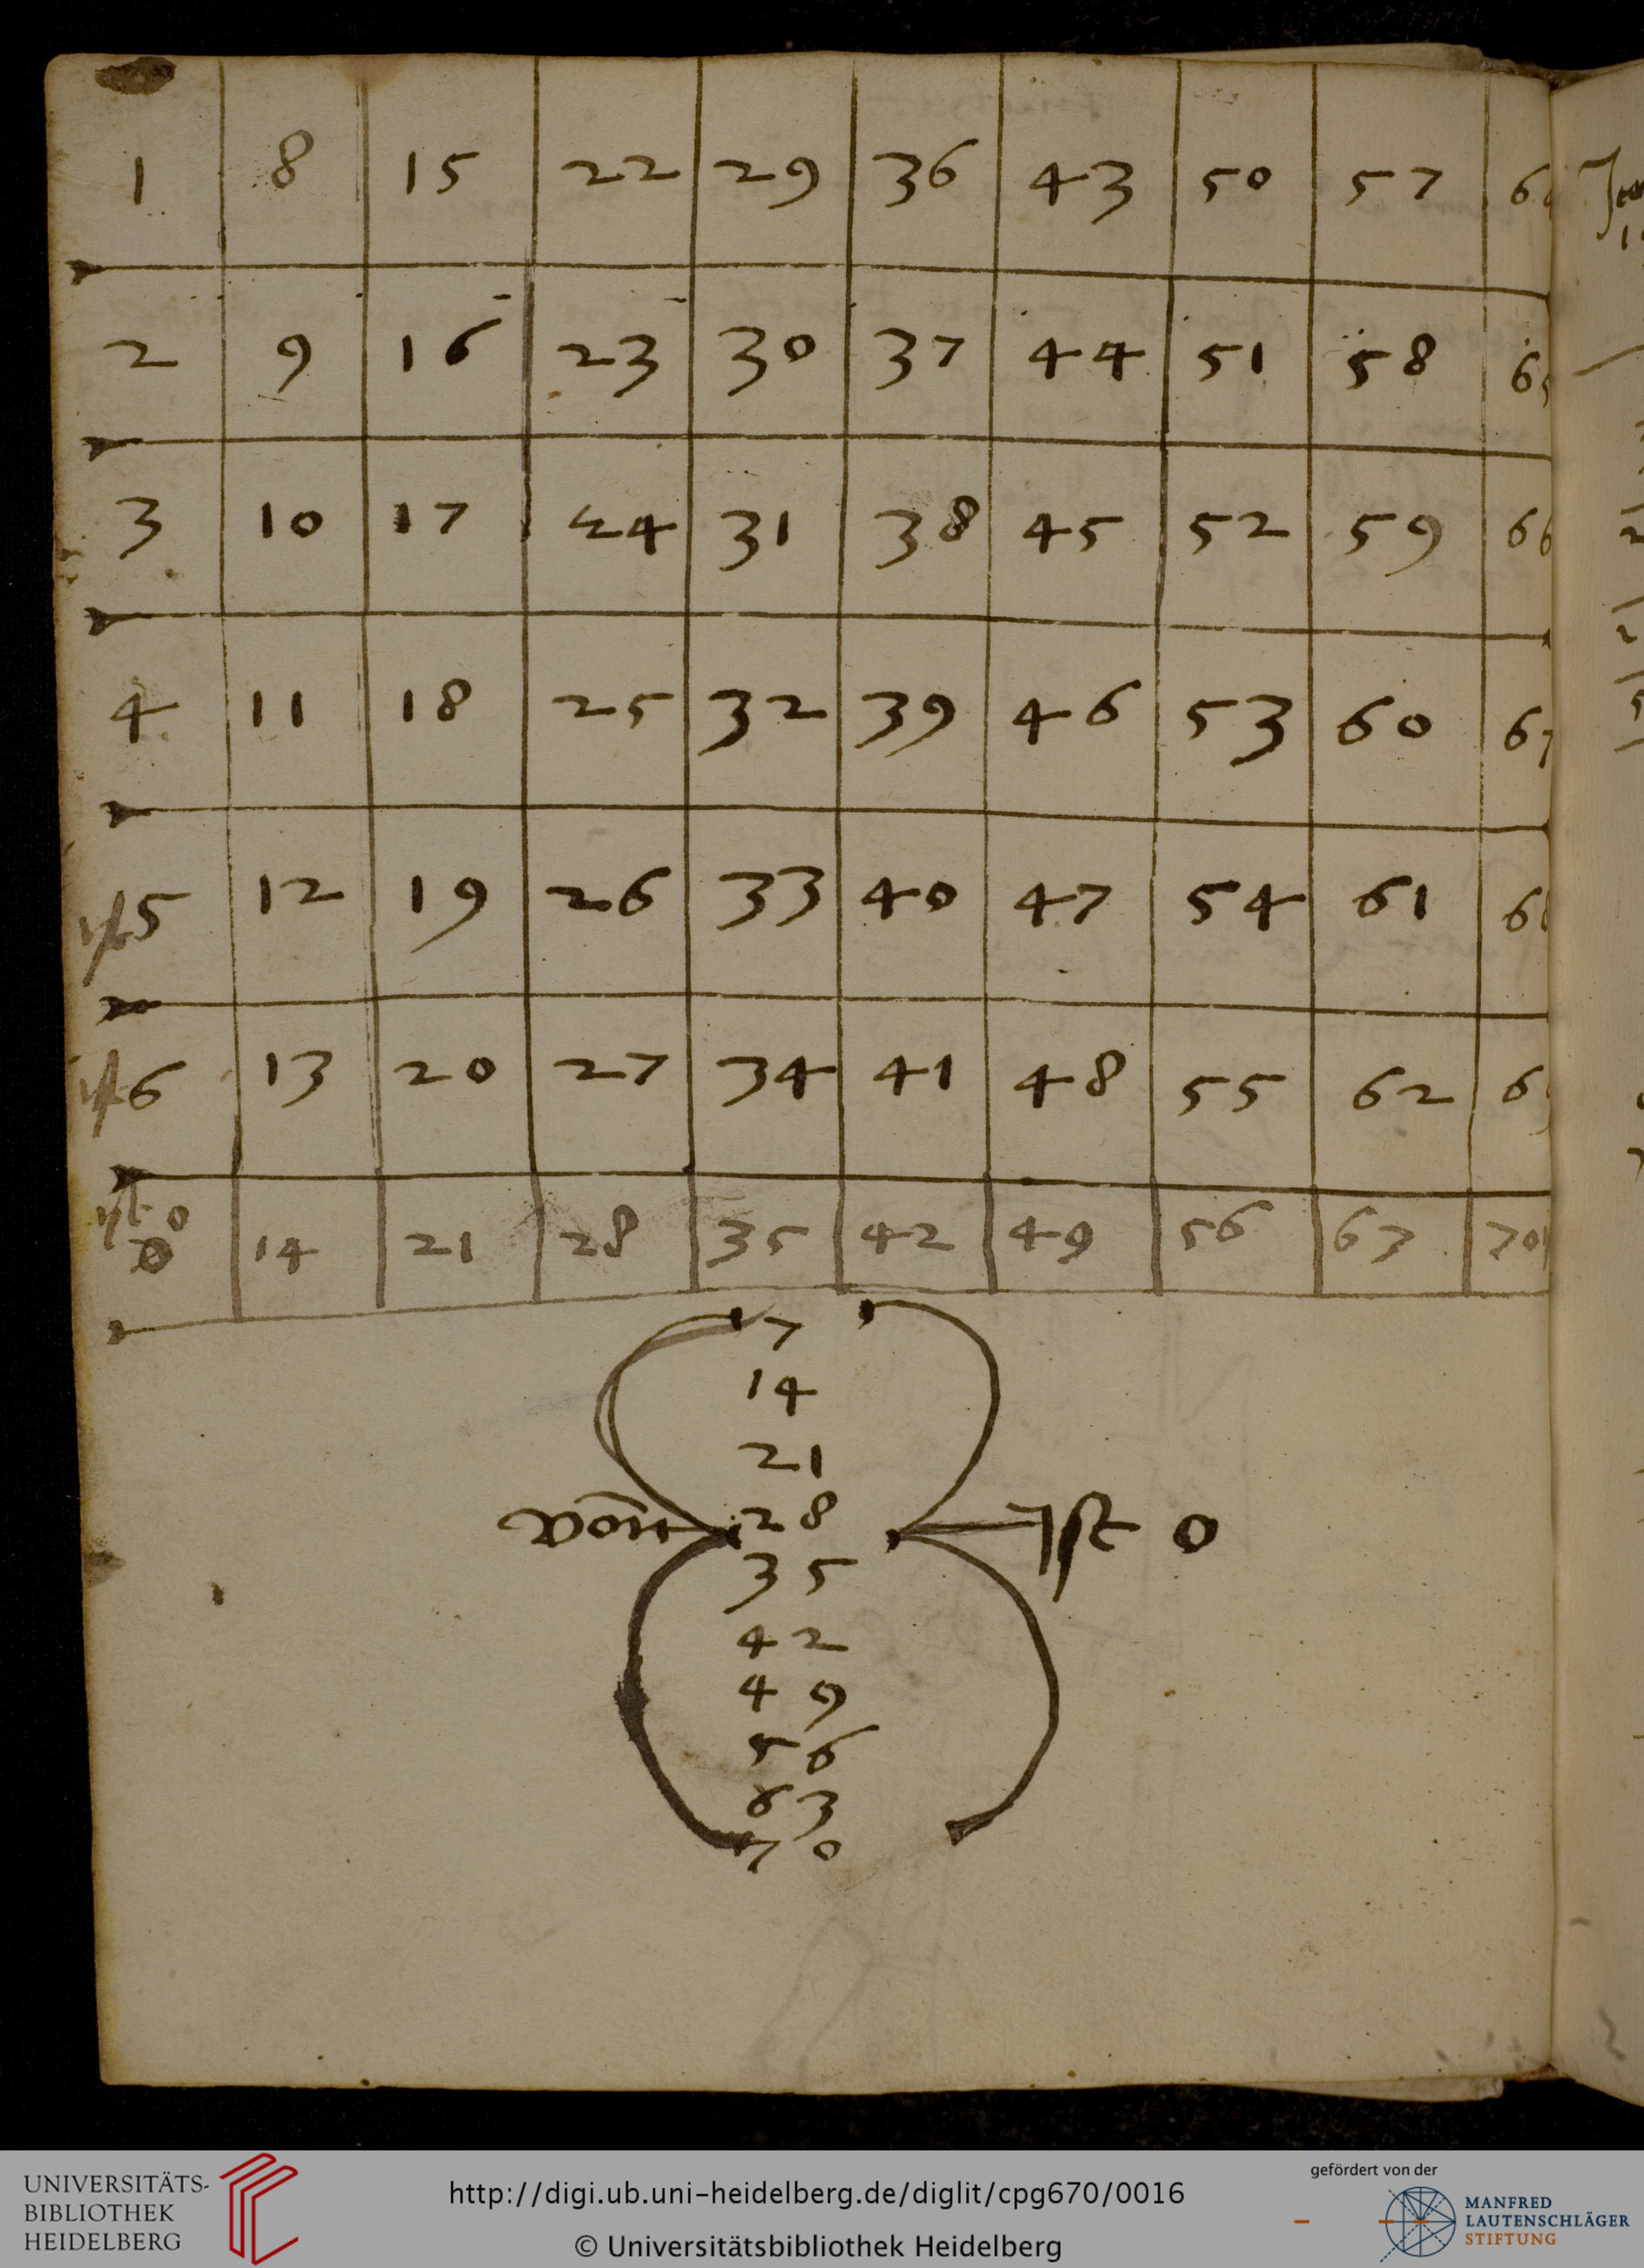 1 8 15 22 29 36 43 50 57
2 9 16 23 30 37 44 51 58
3 10 17 24 31 38 45 52 59 66
4 11 18 25 32 39 46 53 60 67
5 12 19 26 33 40 47 54 61
6 13 20 27 34 41 48 55 62
ist 0
0 14 21 28 35 42 49 56 63 70
7
14
21
28 ist 0
35
42
49
56
63
70
UNIVERSITÄTS-
BIBLIOTHEK
HEIDELBERG
http://digi.ub.uni-heidelberg.de/diglit/cpg670/0016
© Universitätsbibliothek Heidelberg
gefördert von der
MANFRED
LAUTENSCHLÄGER
STIFTUNG